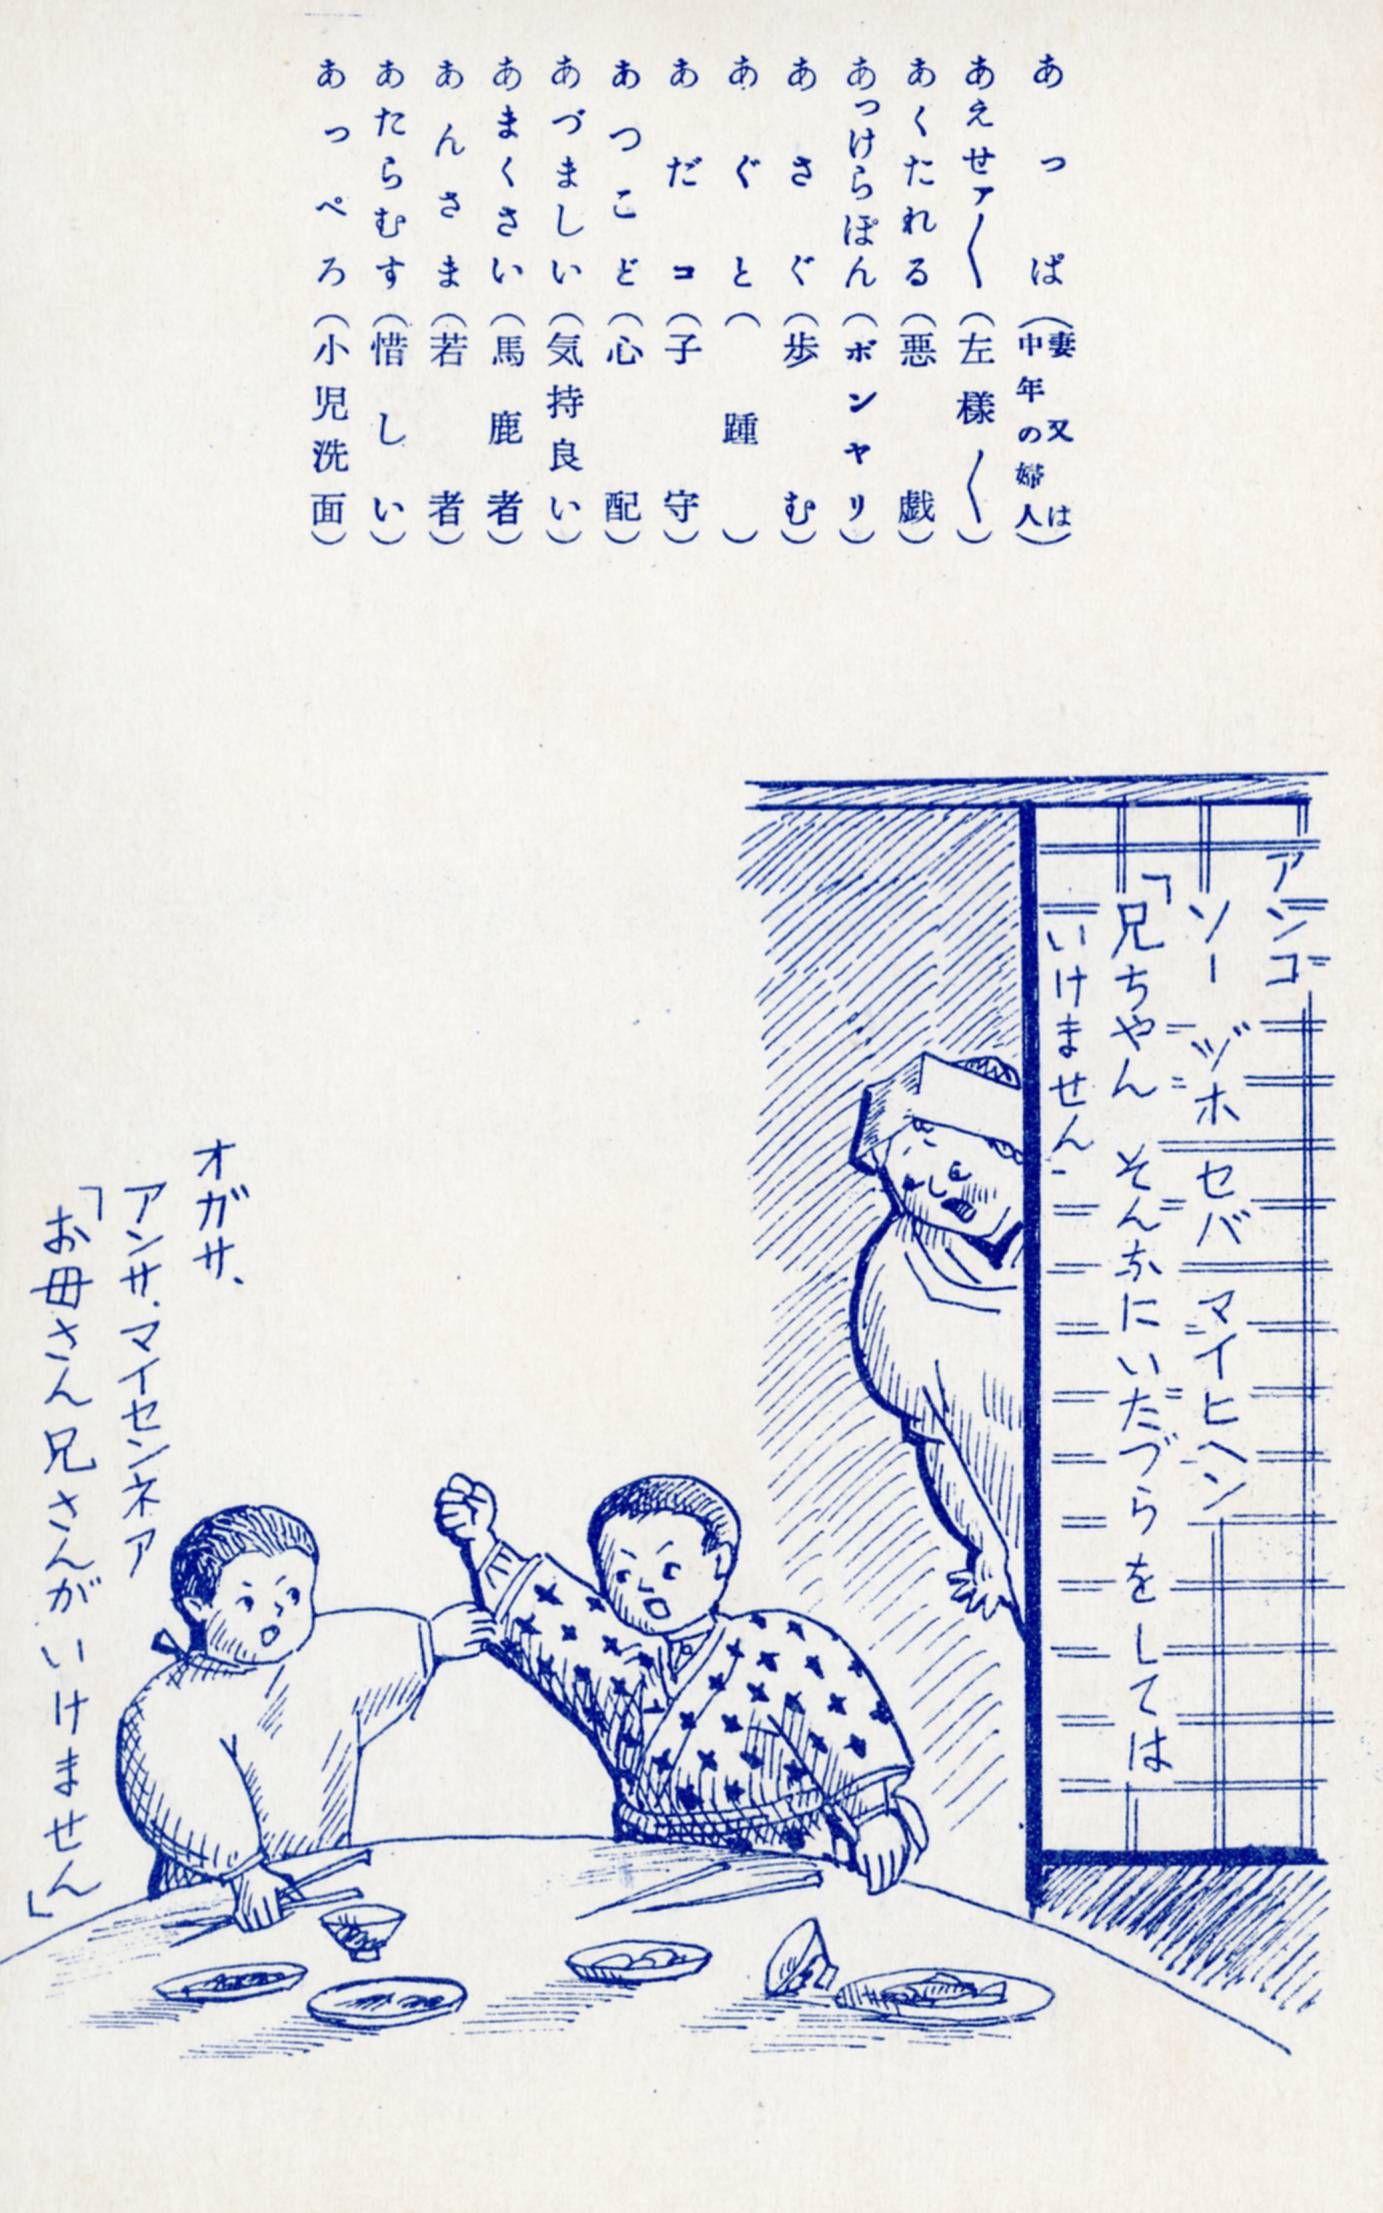 あっぱ（妻又は中年の婦人）
あえせァ〱（左様〱）
あくたれる（悪戯）
あっけらぽん（ボンヤリ）
あさぐ（歩む）
あぐと（踵）
あだコ（子守）
あつこど（心配）
あづましい（気持良い）
あまくさい（馬鹿者）
あんさま（若者）
あたらむす（惜しい）
あっぺろ（小児洗面）
アンコ
ソーヅホセバマイヒヘン
「兄ちやんそんなにいたづらをしては
いけません
オガサ、
アンサ.マイセンネア
「お母さん兄さんがいけません」